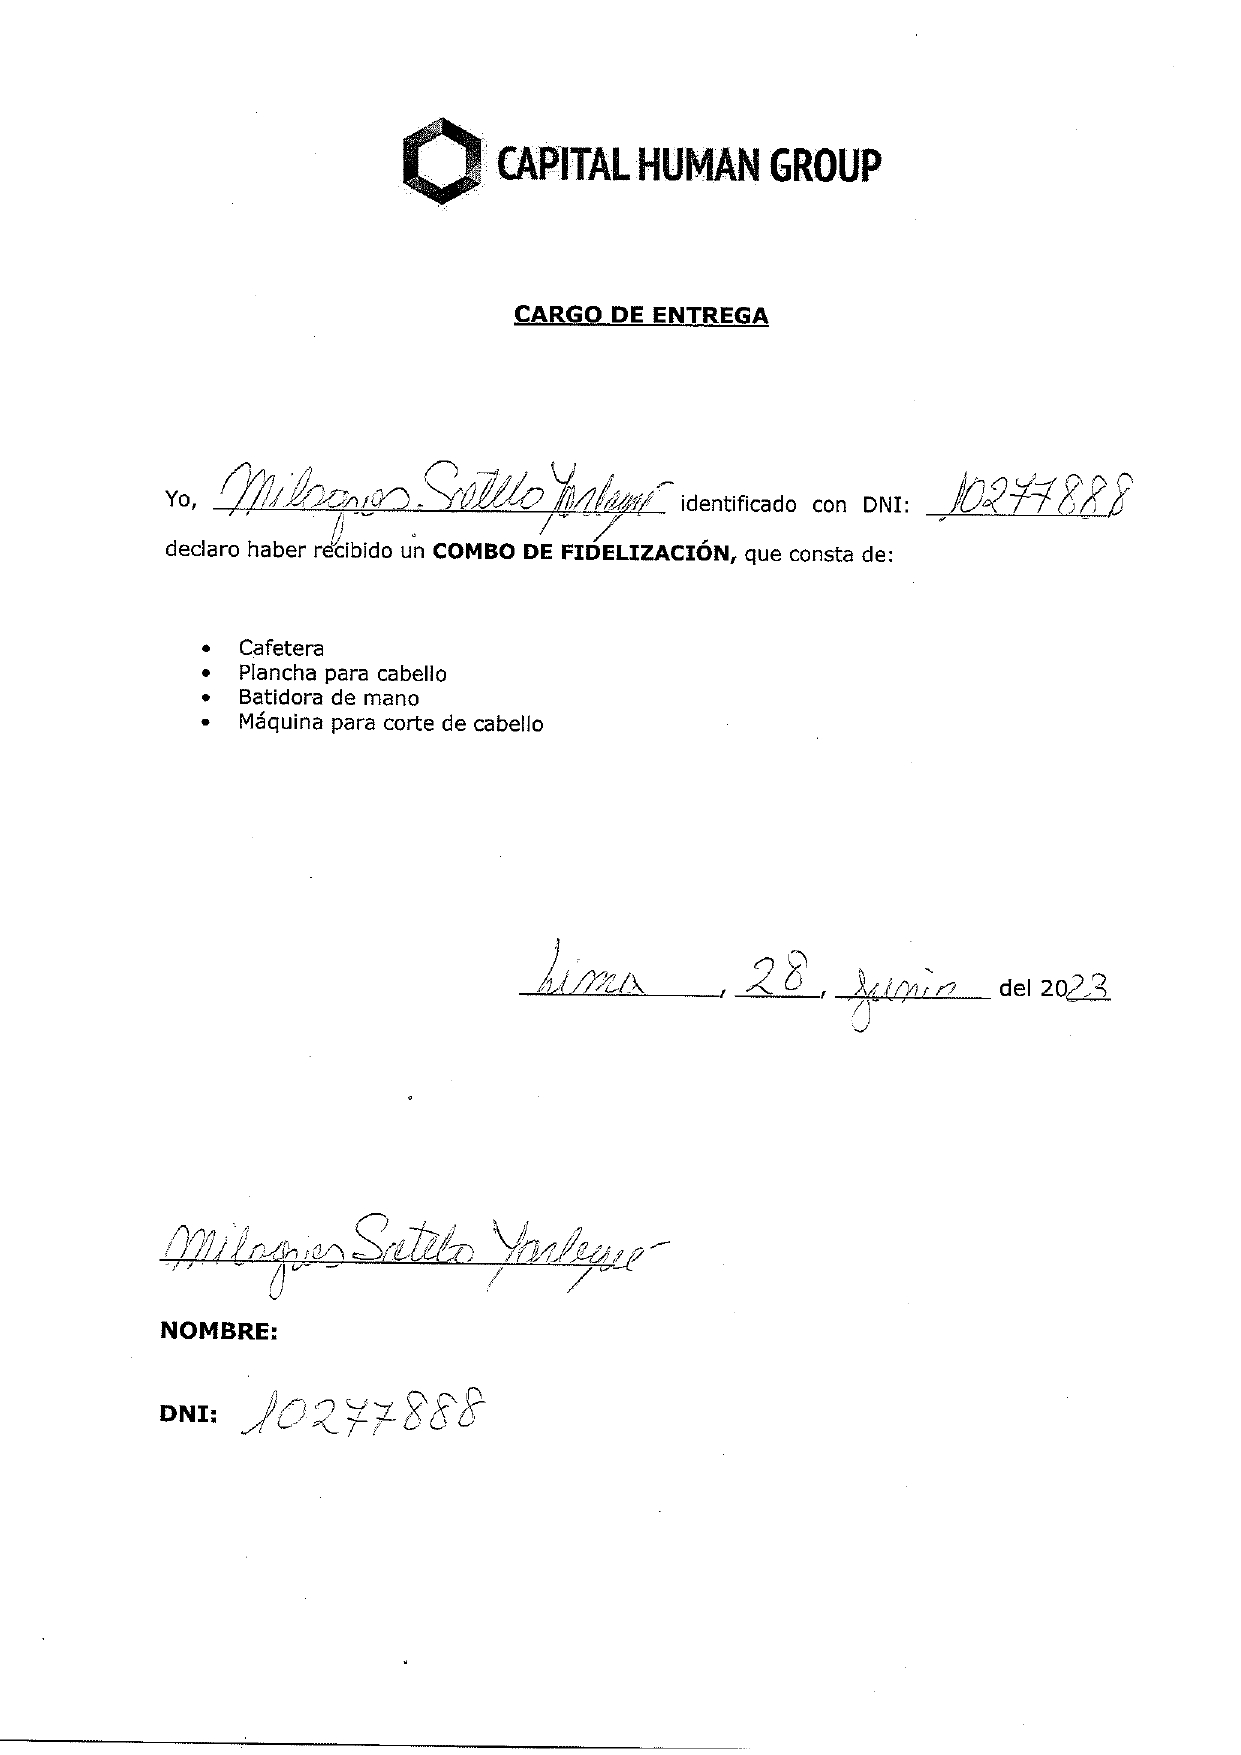 CAPITAL HUMAN GROUP
CARGO DE ENTREGA
Yo, Milagros Sotelo Yarlequé identificado con DNI: 10277888
declaro haber recibido un COMBO DE FIDELIZACIÓN, que consta de:
• Cafetera
• Plancha para cabello
• Batidora de mano
• Máquina para corte de cabello
Lima, 28, junio del 2023
Milagros Sotelo Yarleque
NOMBRE:
DNI: 10277888